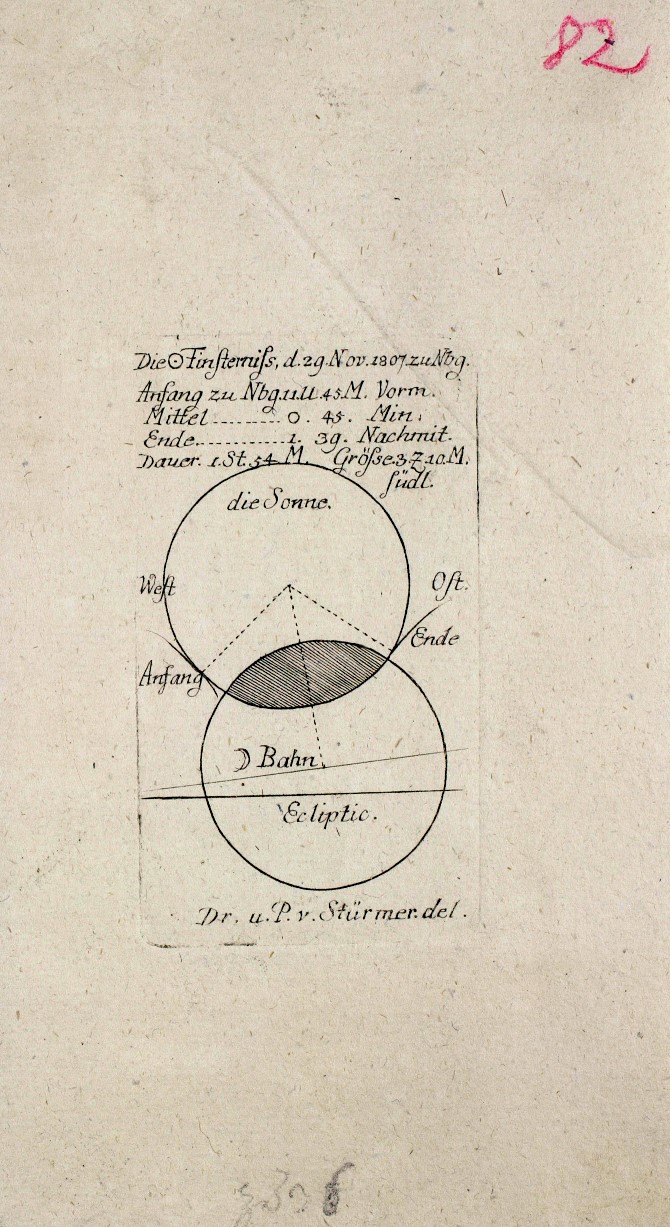 82
Die ☉ Finsterniſs, d. 29. Nov. 1807. zu Nbg.
Anfang zu Nbg. 11. U. 45. M. Vorm.
Mittel ......... 0. 45. Min.
Ende ............ 1. 39. Nachmit.
Dauer. 1. St. 54 M. Gröſse. 3. Z. 10. M.
ſüdl.
die Sonne.
Weſt
Oſt.
Ende
Anfang
☽ Bahn.
Ecliptic.
Dr. u. P. v. Stürmer. del.